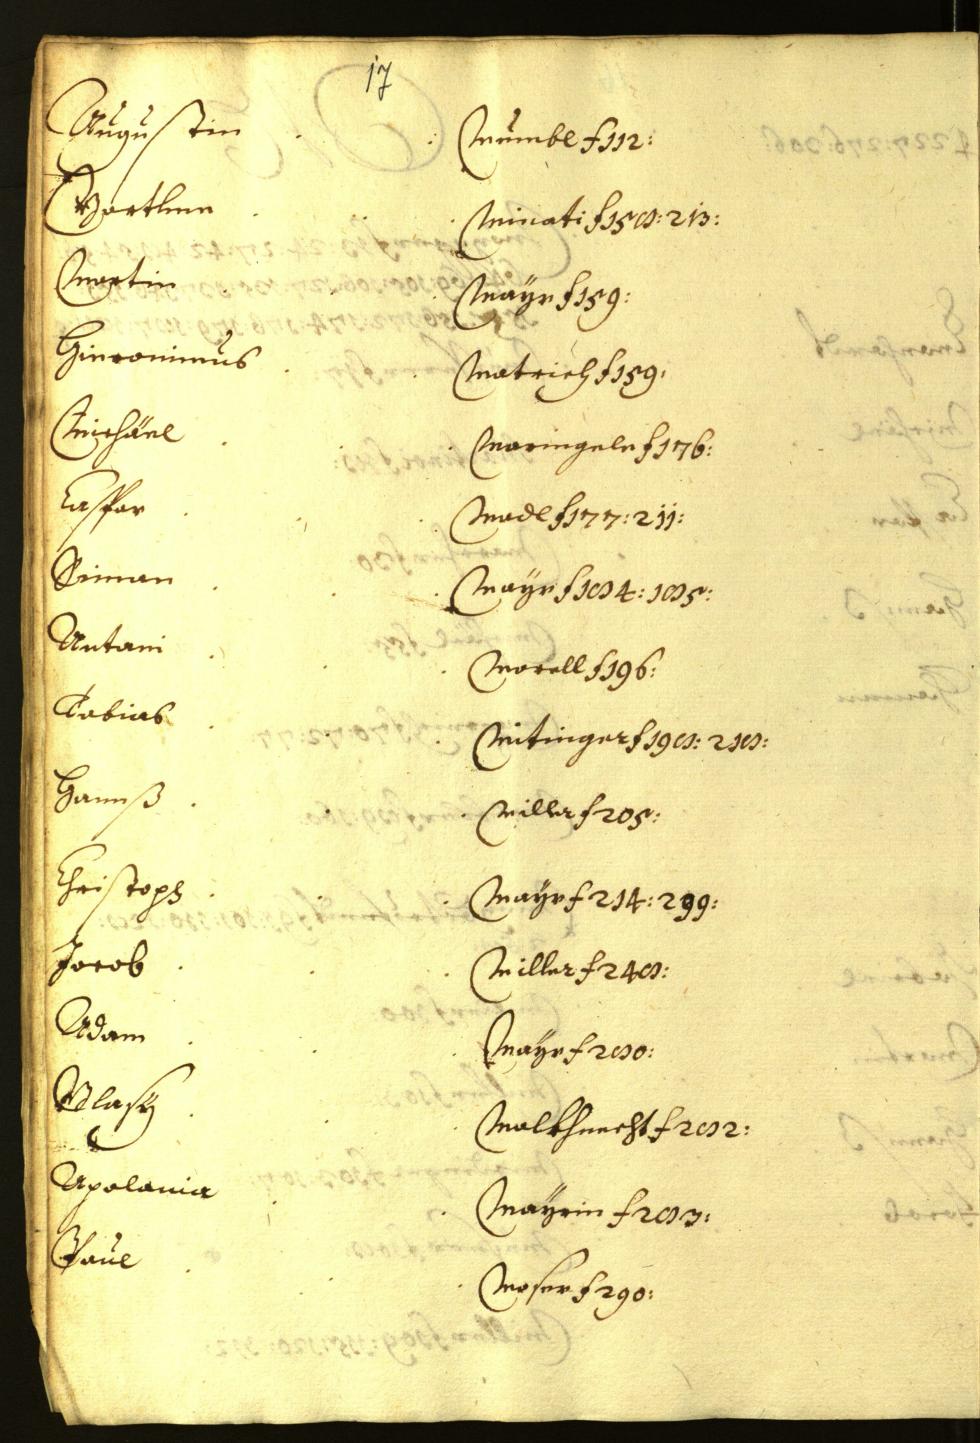 17
Augustin Mumbl f 112:
Barthlme Minati f 158: 213:
Martin Mayr f 159:
Hieronimus Matrich f 159:
Michäel Maringele f 176:
Caspar Madl f 177: 211:
Siman Mayr f 184: 185:
Antani Morell f 196:
Tobias Mitinger f 198: 218:
Hannß Miller f 205:
Christoph Mayr f 214: 299:
Jacob Miller f 248:
Adam Mayr f 280:
Blasÿ Malkhnecht f 282:
Apolania Maÿrin f 283:
Paul Moser f 290: